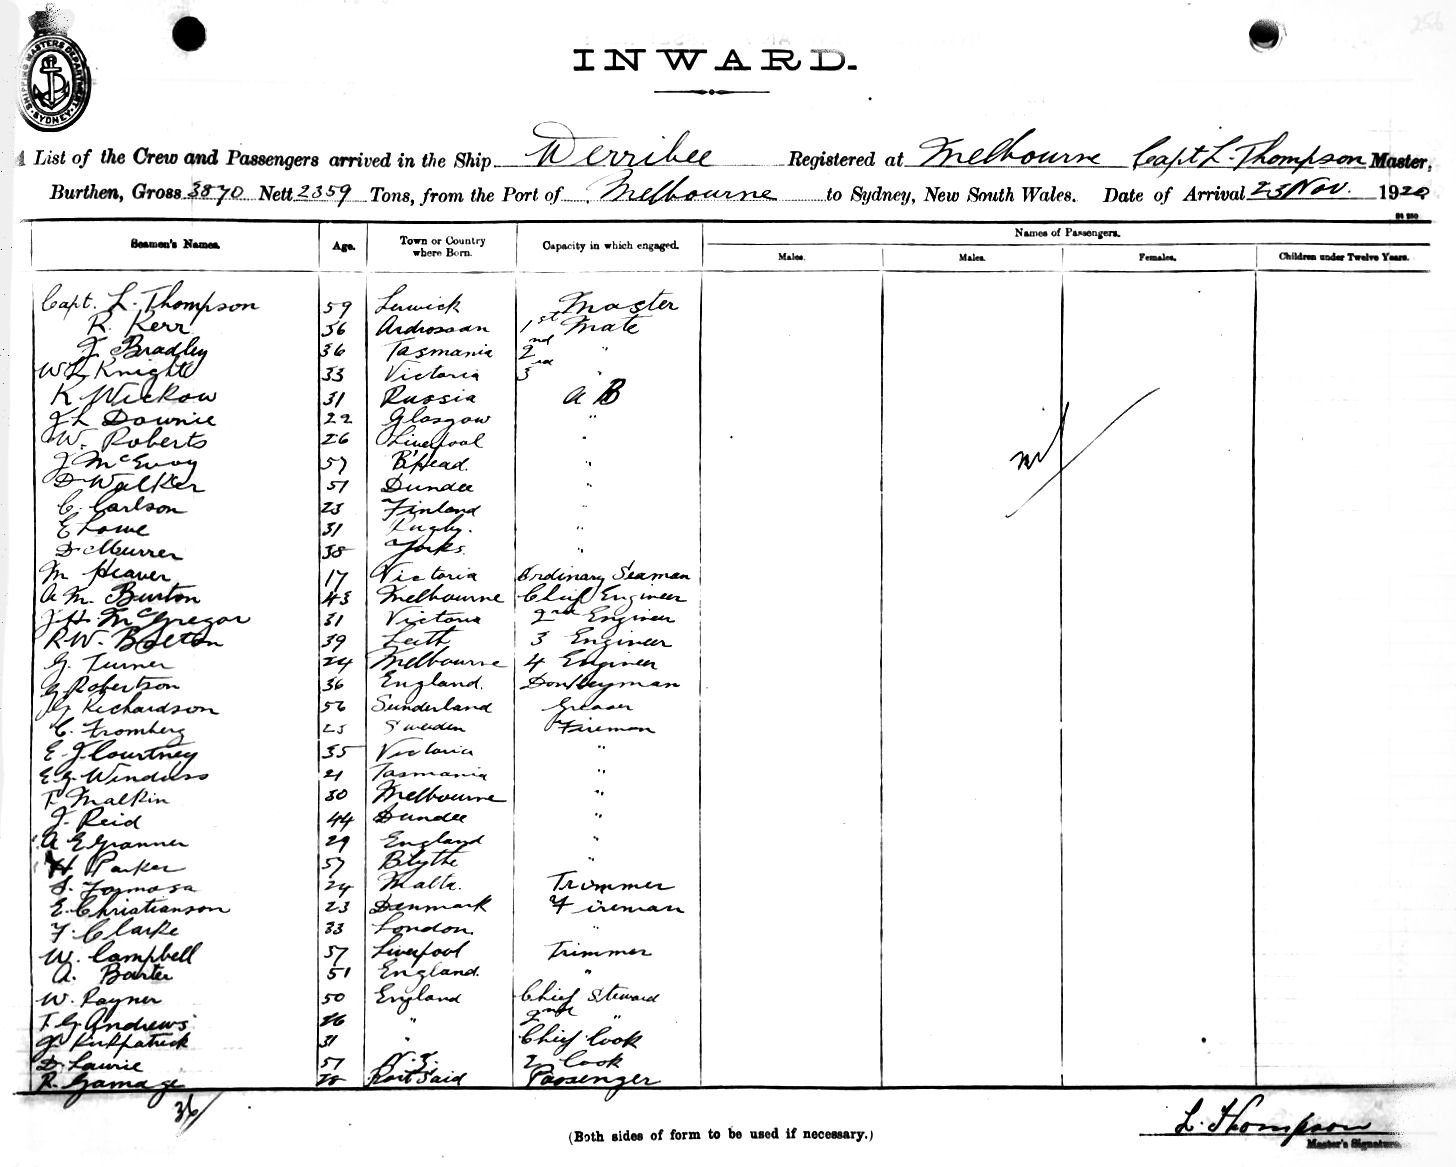 SHIPPING MASTERS DEPARTMENT. SYDNEY
INWARD.
List of the Crew and Passengers arrived in the Ship Werribee Registered at Melbourne Capt L. Thompson Master,
Burthen, Gross 3870 Nett 2359 Tons, from the Port of Melbourne to Sydney, New South Wales. Date of Arrival 23 Nov. 1920
Seamen's Names. Age. Town or Country where Born. Capacity in which engaged. Names of Passengers.
Males. Males. Females. Children under Twelve Years.
Capt. L. Thompson 59 Lerwick Master
R. Kerr 36 Ardrossan 1st Mate
Bradley 36 Tasmania 2nd "
Knight 33 Victoria 3rd "
K 31 Russia A B
Downie 22 Glasgow "
W. Roberts 26 Liverpool "
J McEvoy 57 B'Head. "
D Walker 51 Dundee "
C. Carlson 23 Finland "
E Lowe 31 Rugby. "
D. 38 Yorks. "
M Heaver 17 Victoria Ordinary Seaman
A M. Burton 43 Melbourne Chief Engineer
J H McGregor 31 Victoria 2nd Engineer
R.W. Bolton 39 Leith 3 Engineer
G. Turner 24 Melbourne 4 Engineer
Robertson 36 England. Donkeyman
Richardson 56 Sunderland Greaser
C. Fromberg 23 Sweden Fireman
E. J Courtney 35 Victoria "
E G Windass 21 Tasmania "
Malkin 30 Melbourne "
J. Reid 44 Dundee "
A E Granner 29 England "
H Parker 57 Blythe "
S. Formosa 24 Malta. Trimmer
E. Christianson 23 Denmark Fireman
F. Clarke 33 London "
W. Campbell 57 Liverpool Trimmer
A. Barter 51 England. "
W. Rayner 50 England Chief Steward
T G Andrews 26 " 2nd "
Kirkpatrick 31 " Chief Cook
D. Lawrie 51 N.Z. 2 Cook
R. Gamage Port Said Passenger
nil
36
L. Thompson
(Both sides of form to be used if necessary.)
Master's Signature.